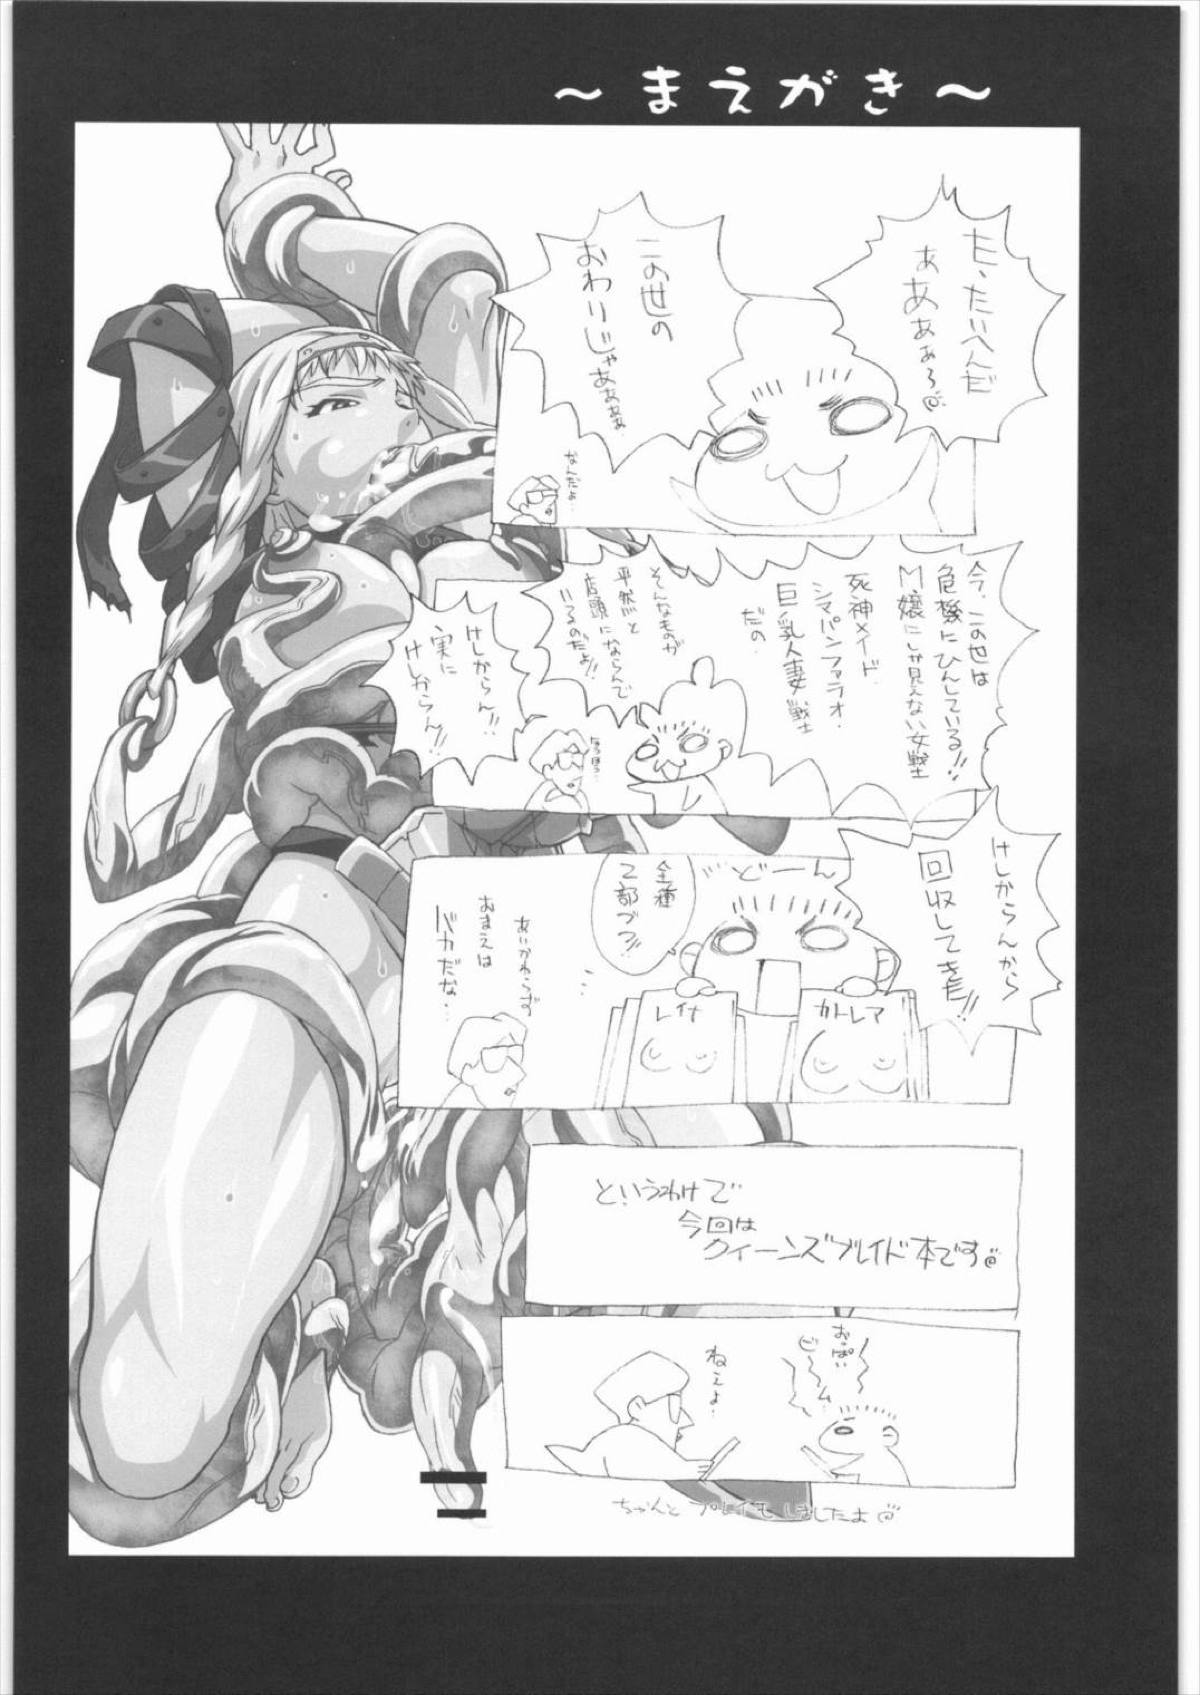 ～まえがき～
た、たいへんだ
ああぁぁ
この世の
おわりじゃあぁぁぁ
なんだよ…
今、この世は
危機にひんしている!!
M嬢にしか見えない女戦士
死神メイド
シマパンファラオ・
巨乳人妻戦士
だの
そんなものが
平然と
店頭にならんで
いるのだよ!!
けしからん!!
実に
けしからん!!
なるほど…
けしからんから
回収してきた!!
どーん
全種
2部づつ!!
レイナ
カトレア
あいかわらず
おまえは
バカだな…
というわけで
今回は
クイーンズブレイド本です@
おっぱい
ビーム
ねぇよ…
ちゃんとプレイもしましたよ@